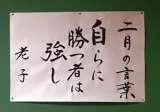 二月の言葉
自らに
勝つ者は
強し
老子